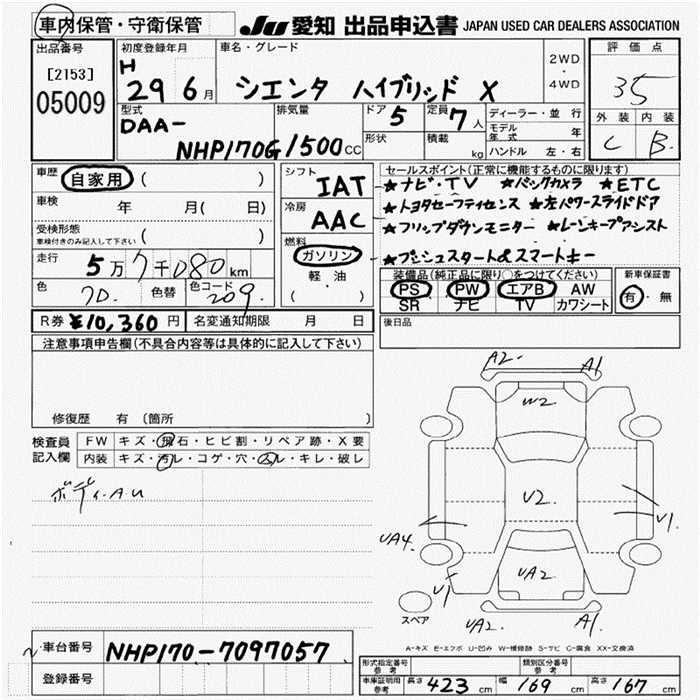 車内保管・守衛保管
JU 愛知 出品申込書 JAPAN USED CAR DEALERS ASSOCIATION
出品番号
[2153]
05009
初度登録年月
H 29 6月
車名・グレード
シエンタ ハイブリッド X
2WD
・
4WD
評価点
3.5
外装 内装
C B
型式
DAA-
NHP170G
排気量
1500CC
ドア 5
形状
定員 7人
積載 kg
ディーラー・並行
モデル年式 年
ハンドル 左・右
車歴 自家用 ( )
車検 年 月( 日)
受検形態
車検付きのみ記入して下さい ( )
走行 5万7千080km
色 色替 色コード 209
シフト IAT
冷房 AAC
燃料
ガソリン
軽・油
( )
セールスポイント(正常に機能するものに限ります)
★ナビ・TV ★バックカメラ ★ETC
★トヨタセーフティセンス ★左パワースライドドア
★フリップダウンモニター ★レーンキープアシスト
★プッシュスタート&スマートキー
装備品(純正品に限り○をつけてください)
PS PW エアB AW
SR ナビ TV カワシート
新車保証書
有・無
R券 ¥10,360円 名変通知期限 月 日
後日品
注意事項申告欄(不具合内容等は具体的に記入して下さい)
修復歴 有 (箇所 )
検査員記入欄
FW キズ・飛石・ヒビ割・リペア跡・X要
内装 キズ・汚レ・コゲ・穴・スレ・キレ・破レ
ボディAU
A2 A1
W2
U2
UA4 U1
UA2
U1
UA2 A1
スペア
A-キズ E-エクボ U-凹み W-補修跡 S-サビ C-腐食 XX-交換済
車台番号 NHP170-7097057
登録番号
形式指定番号 参考
類別区分番号 参考
車庫証明用 参考 長さ 423 cm 幅 169 cm 高さ 167 cm